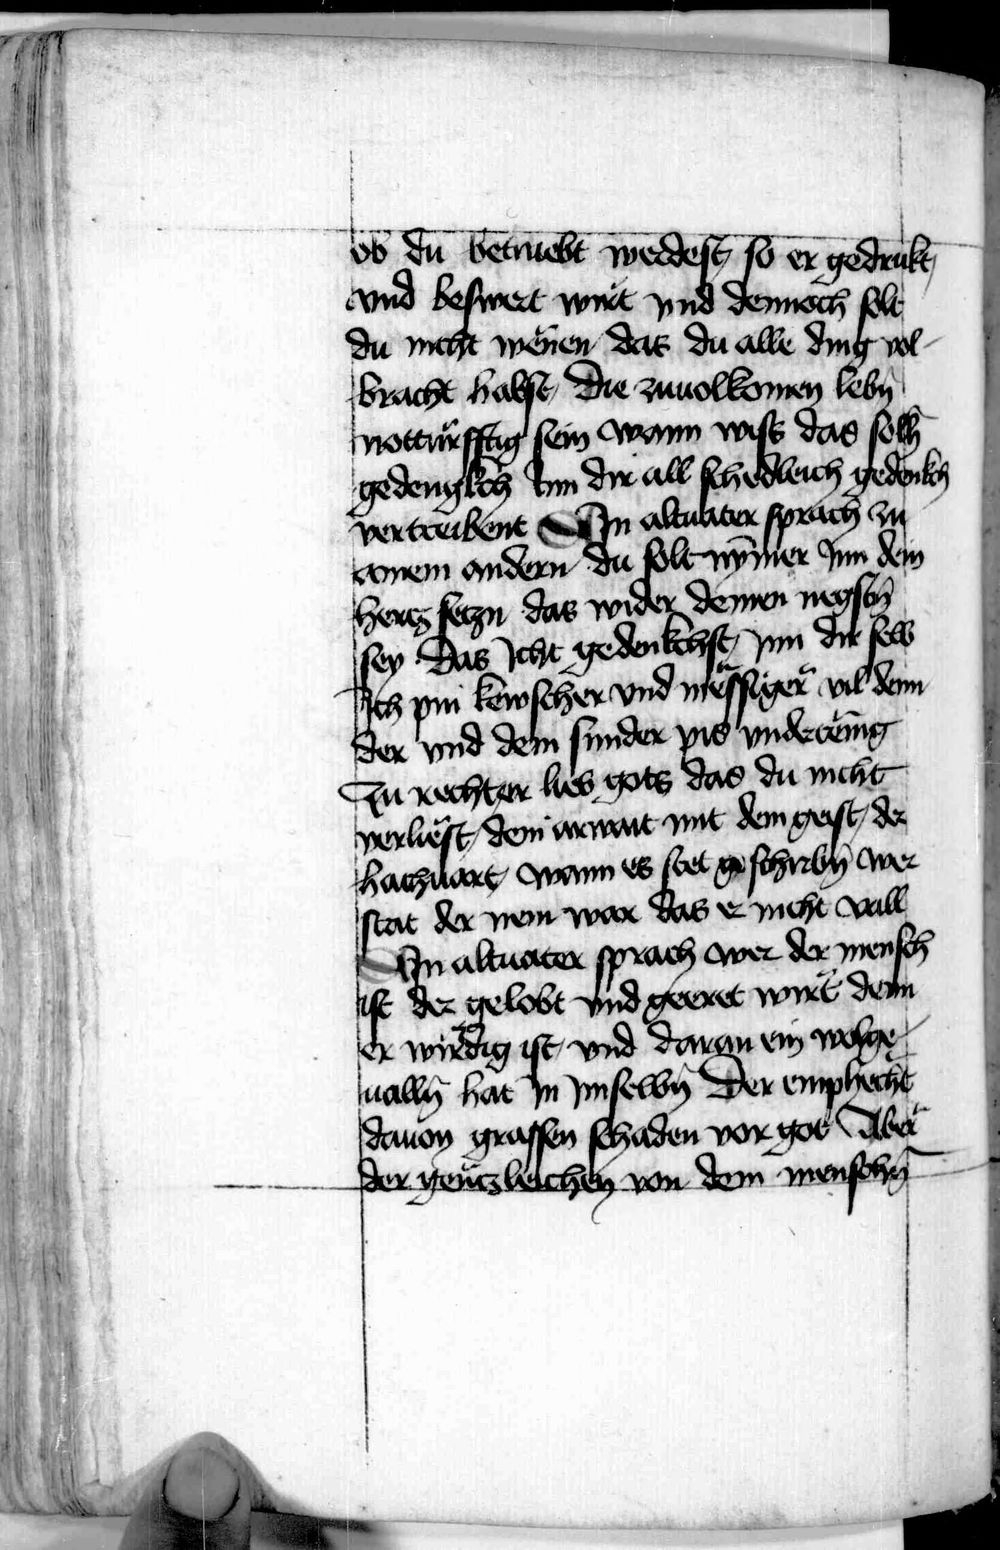 ob du betruebt werdest so er gedrukt
vnd beswert wirt vnd dennoch solt
du nicht wenen das du alle ding vol-
bracht habst die zuuolkomen lebn̄
notturfftig sein wann wiss das solh̄
gedengkch Inn dir all schedleich gedenkch
vertreibent Ain altuater sprach zu
ainem andern du solt nym̄er Inn dein
hertz seczn das wider deinen negstn̄
sey Das Icht gedenkchst Inn dir selb
Ich pin kewscher vnd messiger vil denn
der vnd dem sunder pis vndertenig
Zu rechter lieb gots das du nicht
verliest dein arwait mit dem geist der
hachuart wann es stet geschribn̄ wer
stat der nem war das er nicht vall
Ain altuater sprach wer der mensch
ist der gelobt vnd geeret wirt denn
er wirdig ist vnd daran ein wolge-
ualln̄ hat In Imselbn̄ Der emphecht
dauon grassen schaden vor got Aber
der genczleichen von dem menschn̄